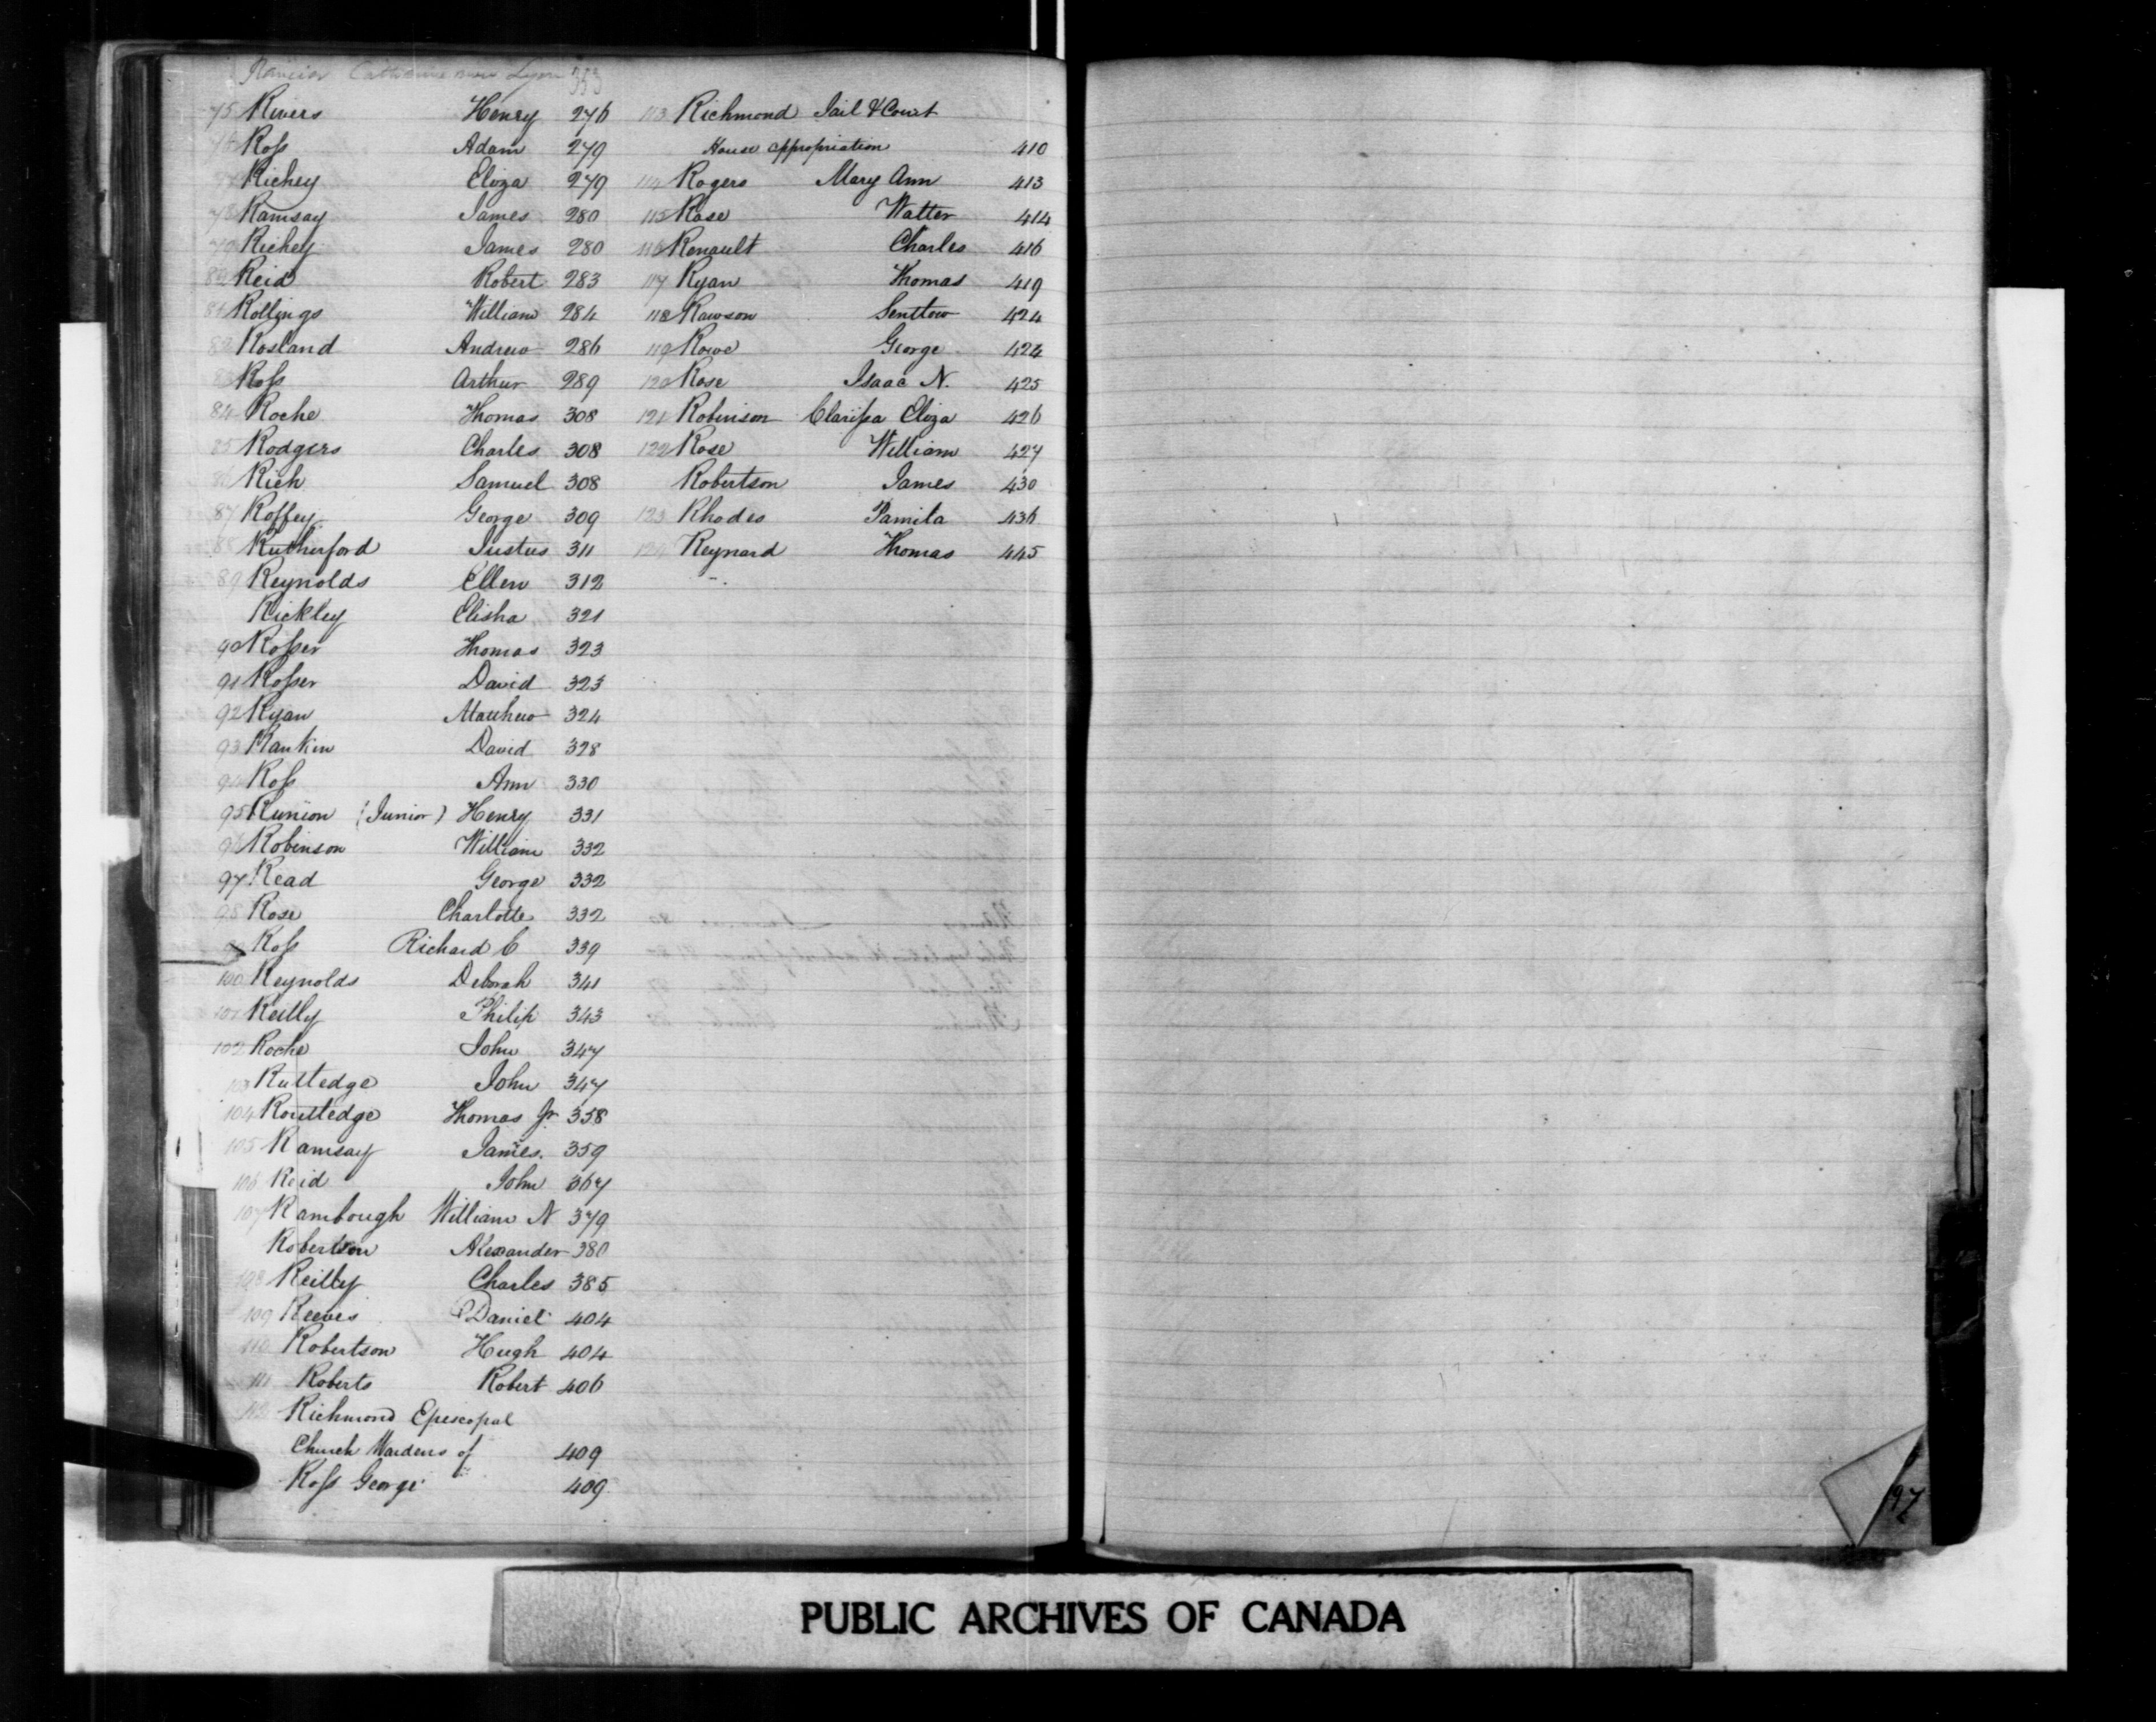 Catherine now Lyon 353
75 Rivers Henry 276
Ross Adam 279
Richey Eliza 279
78 Ramsay James 280
79 Richey James 280
80 Reid Robert 283
81 Rollings William 284
82 Rosland Andrew 286
83 Ross Arthur 289
84 Roche Thomas 308
85 Rodgers Charles 308
86 Rich Samuel 308
87 Roffey George 309
88 Rutherford Justus 311
89 Reynolds Ellen 312
Rickley Elisha 321
90 Rosser Thomas 323
91 Rosser David 323
92 Ryan Matthew 324
93 Rankin David 328
94 Ross Ann 330
95 Runion (Junior) Henry 331
96 Robinson William 332
97 Read George 332
98 Rose Charlotte 332
99 Ross Richard C 339
100 Reynolds Deborah 341
101 Reilly Philip 343
102 Roche John 347
103 Rutledge John 347
104 Routledge Thomas Jr 358
105 Ramsay James. 359
106 Reid John 367
107 Rambough William N 379
Robertson Alexander 380
108 Reilly Charles 385
109 Reeves Daniel 404
110 Robertson Hugh 404
111 Roberts Robert 406
112 Richmond Episcopal
Church Wardens of 409
Ross George 409
113 Richmond Jail & Court
House appropriation 410
114 Rogers Mary Ann 413
115 Rose Walter 414
116 Renault Charles 416
117 Ryan Thomas 419
118 Rawson 424
119 Rowe George 424
120 Rose Isaac N. 425
121 Robinson Clarissa Eliza 426
122 Rose William 427
Robertson James 430
123 Rhodes Pamila 436
124 Reynard Thomas 445
97
PUBLIC ARCHIVES OF CANADA